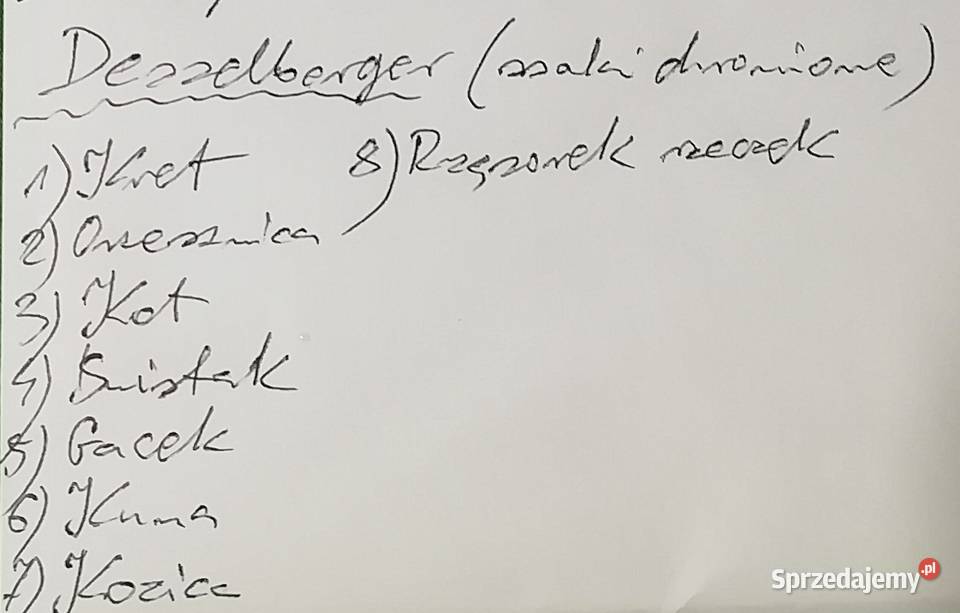 Desselberger (ssaki chronione)
1) Kret
2) Orzesznica
3) Kot
4) Świstak
5) Gacek
6) Kuna
7) Kozica
8) Rzęsorek rzeczek
Sprzedajemy.pl